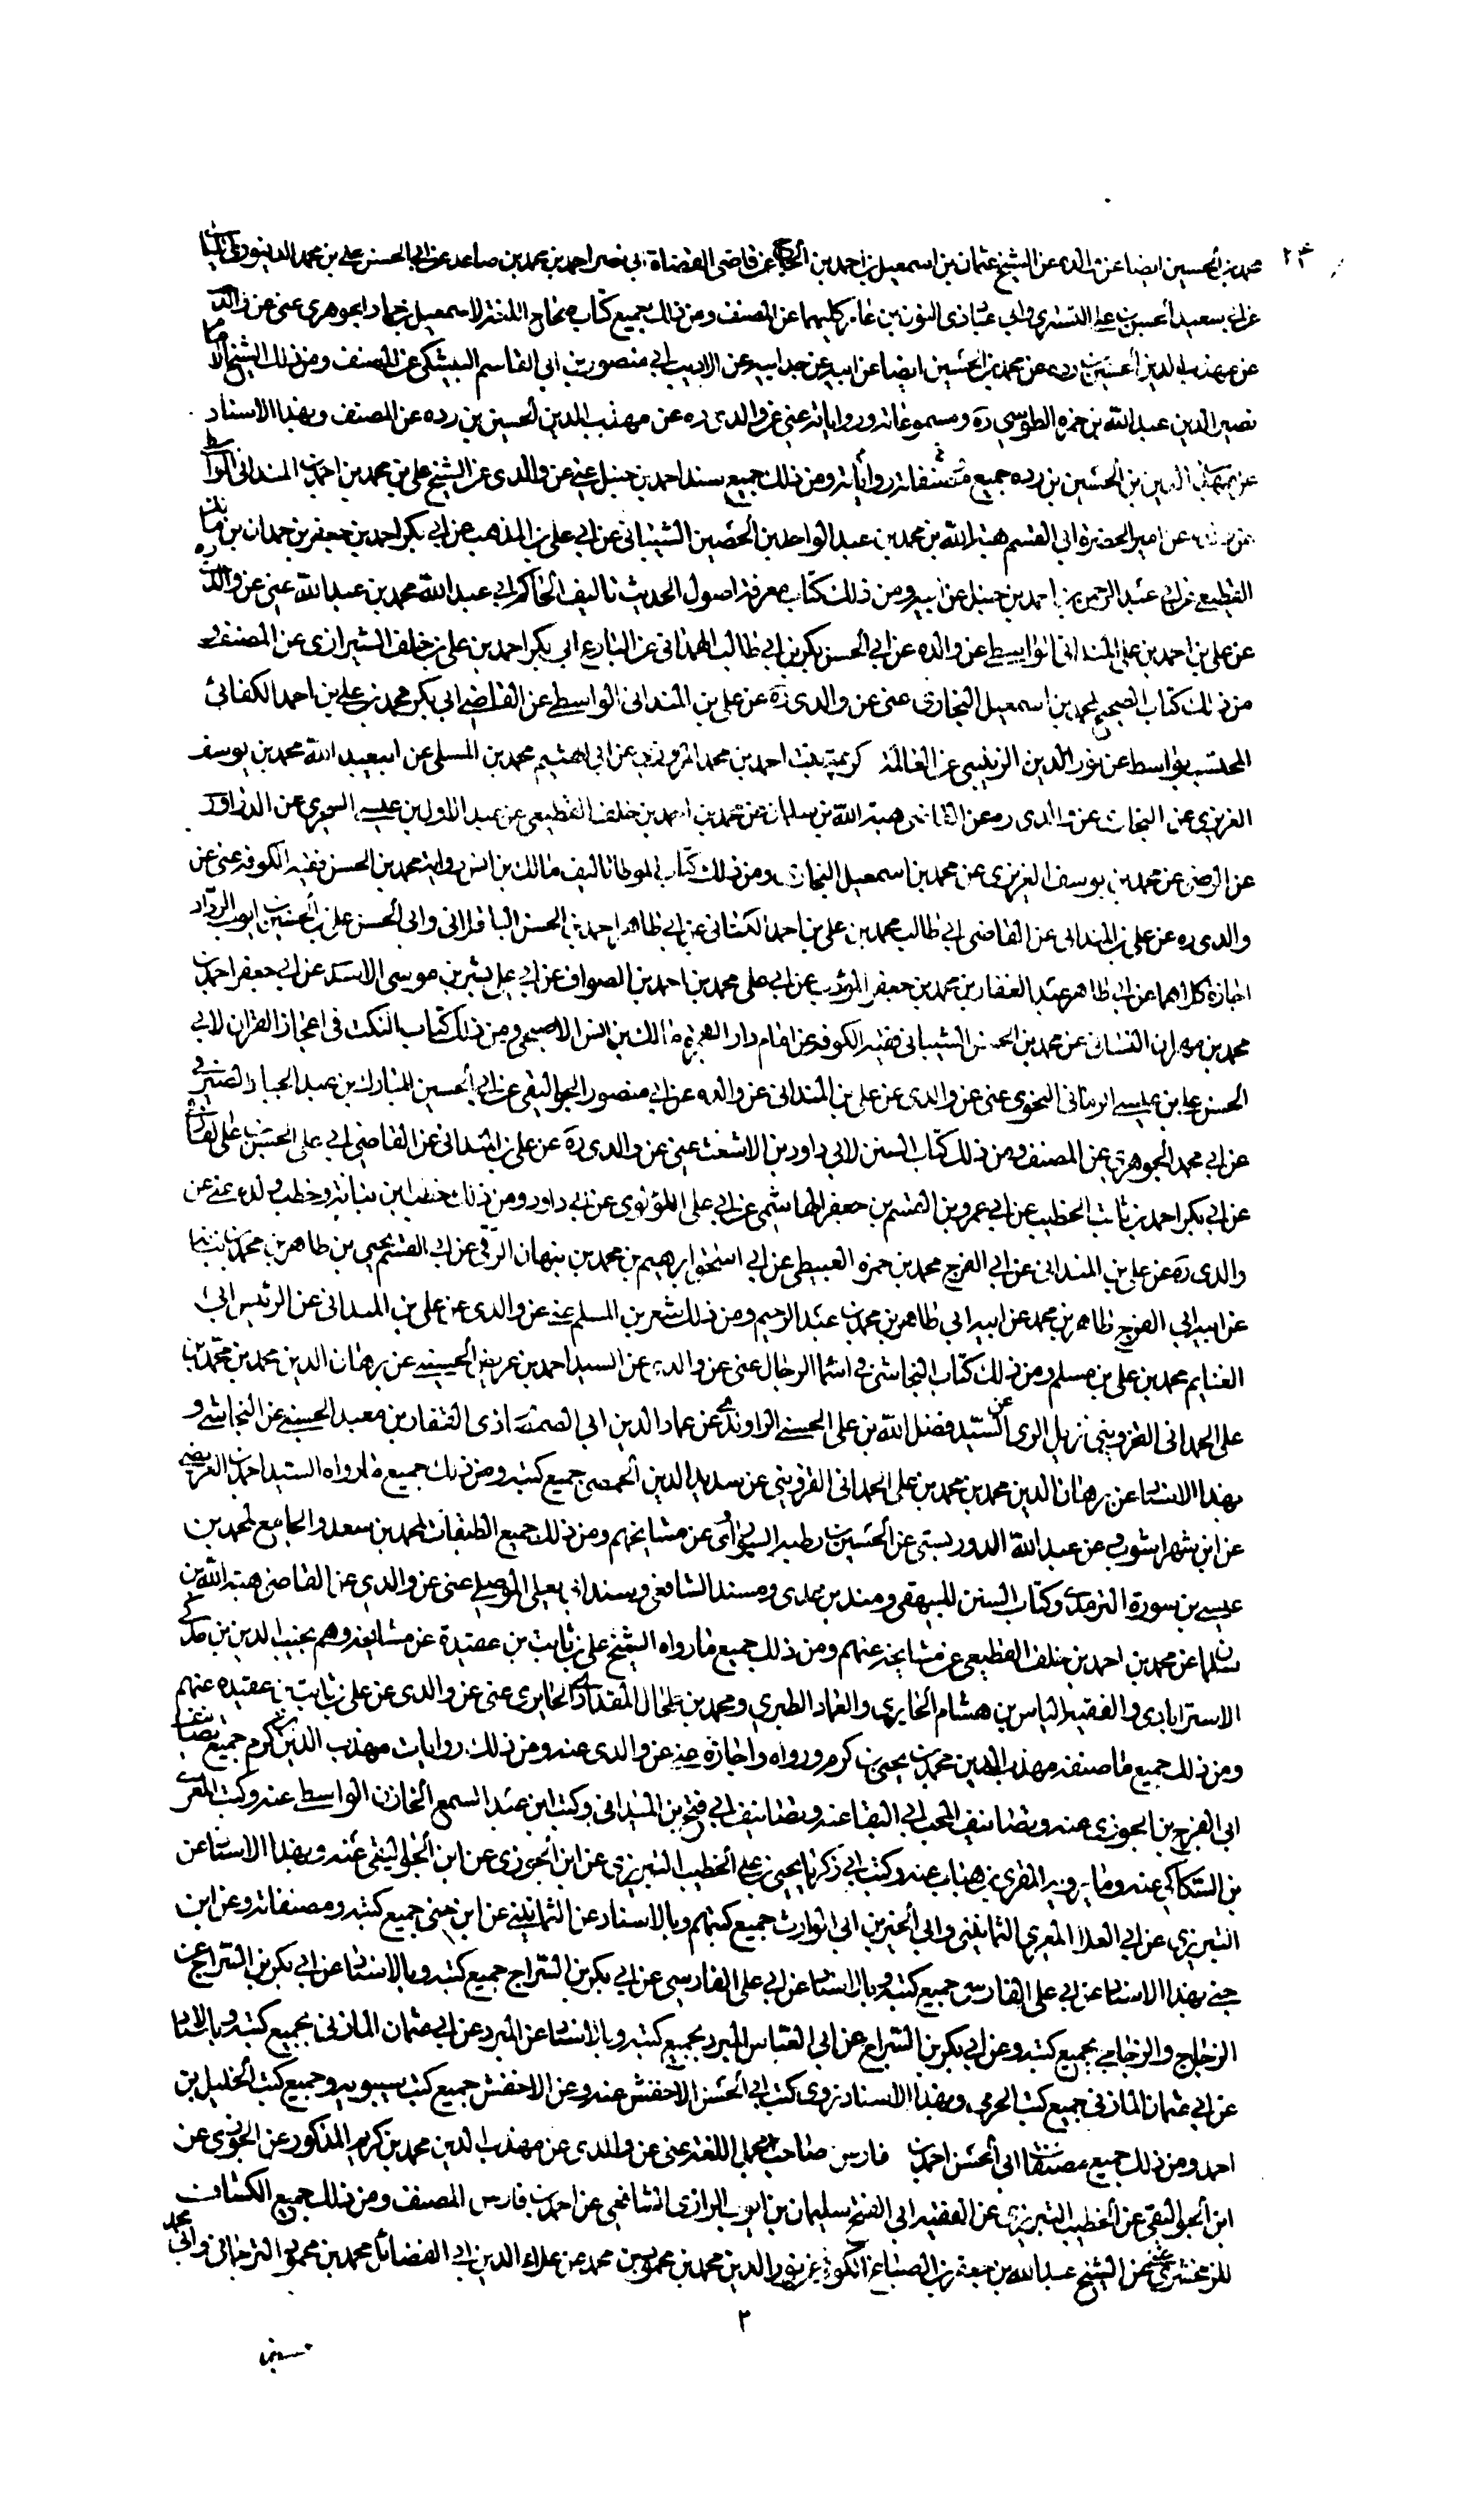 محمد بن الحسين ايضا عن والده عن الشيخ عثمان بن اسمعيل بن احمد بن الحاج عن قاضى القضاة ابى نصر احمد بن محمد بن صاعد عن ابى الحسن على بن محمد الدينورى
عن ابى سعيد الحسن بن على التسترى وابى عن كليهما عن المصنف ومن ذلك جميع كتاب صحاح اللغة لاسمعيل بن حماد الجوهرى عنى عن والدى
عن مهذب الدين الحسين بن رده عن محمد بن الحسين ايضا عن ابيه عن جد ابيه عن الاديب ابى منصور بن ابى القاسم البيشكى عن المصنف ومن ذلك الشيخ الامام
نصير الدين عبد الله بن حمزه الطوسى ره ومسموعاته ورواياته عنى عن والدى ره عن مهذب الدين الحسين بن رده عن المصنف وبهذا الاسناد
عن مهذب الدين بن الحسين بن رده جميع مصنفاته رواياته ومن ذلك جميع مسند احمد بن حنبل عنى عن والدى عن الشيخ على بن محمد بن احمد المندانى الواسطى
عن امير الحضرة ابى القسم هبة الله بن محمد بن عبد الواحد بن الحصين الشيبانى عن ابى على بن المذهب عن ابى بكر احمد بن جعفر بن حمدان بن مالك
القطيعى عن ابى عبد الرحمن بن احمد بن حنبل عن ابيه ومن ذلك كتاب معرفة اصول الحديث تاليف الحاكم ابى عبد الله محمد بن عبد الله عنى عن والدى ره
عن على بن احمد بن على المندانى الواسطى عن والده عن ابى الحسن بكر بن ابى طالب الهمذانى عن البارع ابى بكر احمد بن على بن خلف الشيرازى عن المصنف و
من ذلك كتاب الصحيح لمحمد بن اسمعيل البخارى عنى عن والدى ره عن على بن المندانى الواسطى عن القاضى ابى بكر محمد بن على بن احمد الكفائى
المحتسب بواسط عن نور الدين الزينبى عن العالمة كريمة بنت احمد بن محمد المروزى عن ابى الهيثم محمد بن المسلى عن ابى عبيد الله محمد بن يوسف
الفربرى عن البخارى عن والدى ره عن القاضى هبة الله بن سلمان عن محمد بن احمد بن خلف القطيعى عن عبد الاول بن عيسى السجزى عن الداودى
عن الرضى عن محمد بن يوسف الفربرى عن محمد بن اسمعيل البخارى ومن ذلك كتاب الموطا تاليف مالك بن انس رواية محمد بن الحسن فقيه الكوفه عنى عن
والدى ره عن على بن المندانى عن القاضى ابى طالب محمد بن على بن احمد الكتانى عن ابى طاهر احمد بن الحسن الباقلانى وابى الحسن على بن الحسين بن ايوب
اجازة كلاهما عن ابى طاهر عبد الغفار بن محمد بن جعفر المؤدب عن ابى على محمد بن احمد بن الصواف عن ابى على بشر بن موسى الاسدى عن ابى جعفر احمد بن
محمد بن مهران النسائى عن محمد بن الحسن الشيبانى فقيه الكوفه عن امام دار الهجرة مالك بن انس الاصبحى ومن ذلك كتاب النكت فى اعجاز القران لابى
الحسن على بن عيسى الرمانى النحوى عنى عن والدى عن على بن المندانى عن والده عن ابى منصور الجواليقى عن ابى الحسين المبارك بن عبد الجبار الصيرفى
عن ابى محمد الجوهرى عن المصنف ومن ذلك كتاب السنن لابى داود بن الاشعث عنى عن والدى ره عن على بن المندانى عن القاضى ابى على الحسن بن على
عن ابى بكر احمد بن ثابت الخطيب عن ابى عمرو بن القسم بن جعفر الهاشمى عن ابى على اللؤلؤى عن ابى داود ومن ذلك خطب ابن نباتة وخطب ولده عنى عن
والدى ره عن على بن المندانى عن ابى الفرج محمد بن حمزه القبيطى عن ابى اسحق ابرهيم بن محمد بن نبهان الرقى عن ابى القسم يحيى بن طاهر بن محمد بن نباتة
عن ابيه ابى الفرج طاهر بن محمد عن ابيه ابى طاهر بن محمد بن عبد الرحيم ومن ذلك شعر بن المسلم عنى عن والدى عن على بن المندانى عن الرئيس ابى
الغنايم محمد بن على بن مسلم ومن ذلك كتاب النجاشى فى اسما الرجال عنى عن والدى عن السيد احمد بن عريضى الحسينى عن برهان الدين محمد بن محمد بن
على الحمدانى القزوينى نزيل الرى عن السيد فضل الله بن على الحسنى الراوندى عن عماد الدين ابى الصمصام ذى الفقار بن معبد الحسنى عن النجاشى و
بهذا الاسناد عن برهان الدين محمد بن محمد بن على الحمدانى القزوينى عن سديد الدين الحمصى جميع كتبه ومن ذلك جميع ما رواه السيد احمد بن العريضى
عن ابن شهراشوب عن عبد الله الدوريستى عن الحسين بن رطبه السوراوى عن مشايخهم ومن ذلك جميع الطبقات لمحمد بن سعد والجامع لمحمد بن
عيسى بن سورة الترمذى وكتاب السنن للبيهقى ومسند بن عدى ومسند الشافعى ومسند ابى يعلى الموصلى عنى عن والدى عن القاضى هبة الله بن
سلمان عن محمد بن احمد بن خلف القطيعى عن مشايخه عنهم ومن ذلك جميع ما رواه الشيخ على بن ثابت بن عصيدة عن مشايخه وهم نجيب الدين بن مذكى
الاسترابادى والفقيه الياس بن هشام الحايرى والعماد الطبرى ومحمد بن على خال المقداد الحايرى عنى عن والدى عن على بن ثابت بن عصيده عنهم
ومن ذلك جميع ما صنفه مهذب الدين محمد بن يحيى بن كرم ورواه واجازة عنى عن والدى عنه ومن ذلك روايات مهذب الدين بن كرم جميع تصانيف
ابى الفرج بن الجوزى عنه وتصانيف المحب ابى البقا عنه وتصانيف ابى فتح بن المندانى وكتب ابن عبد السميع الخازن الواسطى عنه وكتب
بن السكاكى عنه وما يرويه المقرى بن هباب عنه وكتب ابى زكريا يحيى بن على الخطيب التبريزى عن ابن الجوزى عن ابن الجواليقى عنه وبهذا الاسناد عن
التبريزى عن ابى العلا المعرى الثمانينى وابى الخير بن ابى الوارث جميع كتبهم وبالاسناد عن الثمانينى عن ابن جنى جميع كتبه ومصنفاته وعن ابن
جنى بهذا الاسناد عن ابى على الفارسى جميع كتبه وبالاسناد عن ابى على الفارسى عن ابى بكر بن السراج جميع كتبه وبالاسناد عن ابى بكر بن السراج عن
الزجاج والزجاجى بجميع كتبه وعن ابى بكر بن السراج عن ابى العباس المبرد بجميع كتبه وبالاسناد عن المبرد عن ابى عثمان المازنى بجميع كتبه وبالاسناد
عن ابى عثمان المازنى جميع كتب الجرمى وبهذا الاسناد نروى كتب ابى الحسن الاخفش عنه وعن الاخفش جميع كتب سيبويه وجميع كتب الخليل بن
احمد ومن ذلك جميع مصنفات ابى الحسن احمد بن فارس صاحب مجمل اللغه عنى عن والدى عن مهذب الدين محمد بن كرم المذكور عن الجوزى عن
ابن الجواليقى عن الخطيب التبريزى عن الفقيه ابى الفتح سليمان بن ايوب الرازى الشافعى عن احمد بن فارس المصنف ومن ذلك جميع الكشاف
للزمخشرى عنى عن الشيخ عبد الله بن جعفر بن الصباغ الكوفى عن نور الدين محمد بن محمود بن محمد عن علاء الدين ابى الفضائل محمد بن محمود الترجمانى وابى محمد
٢